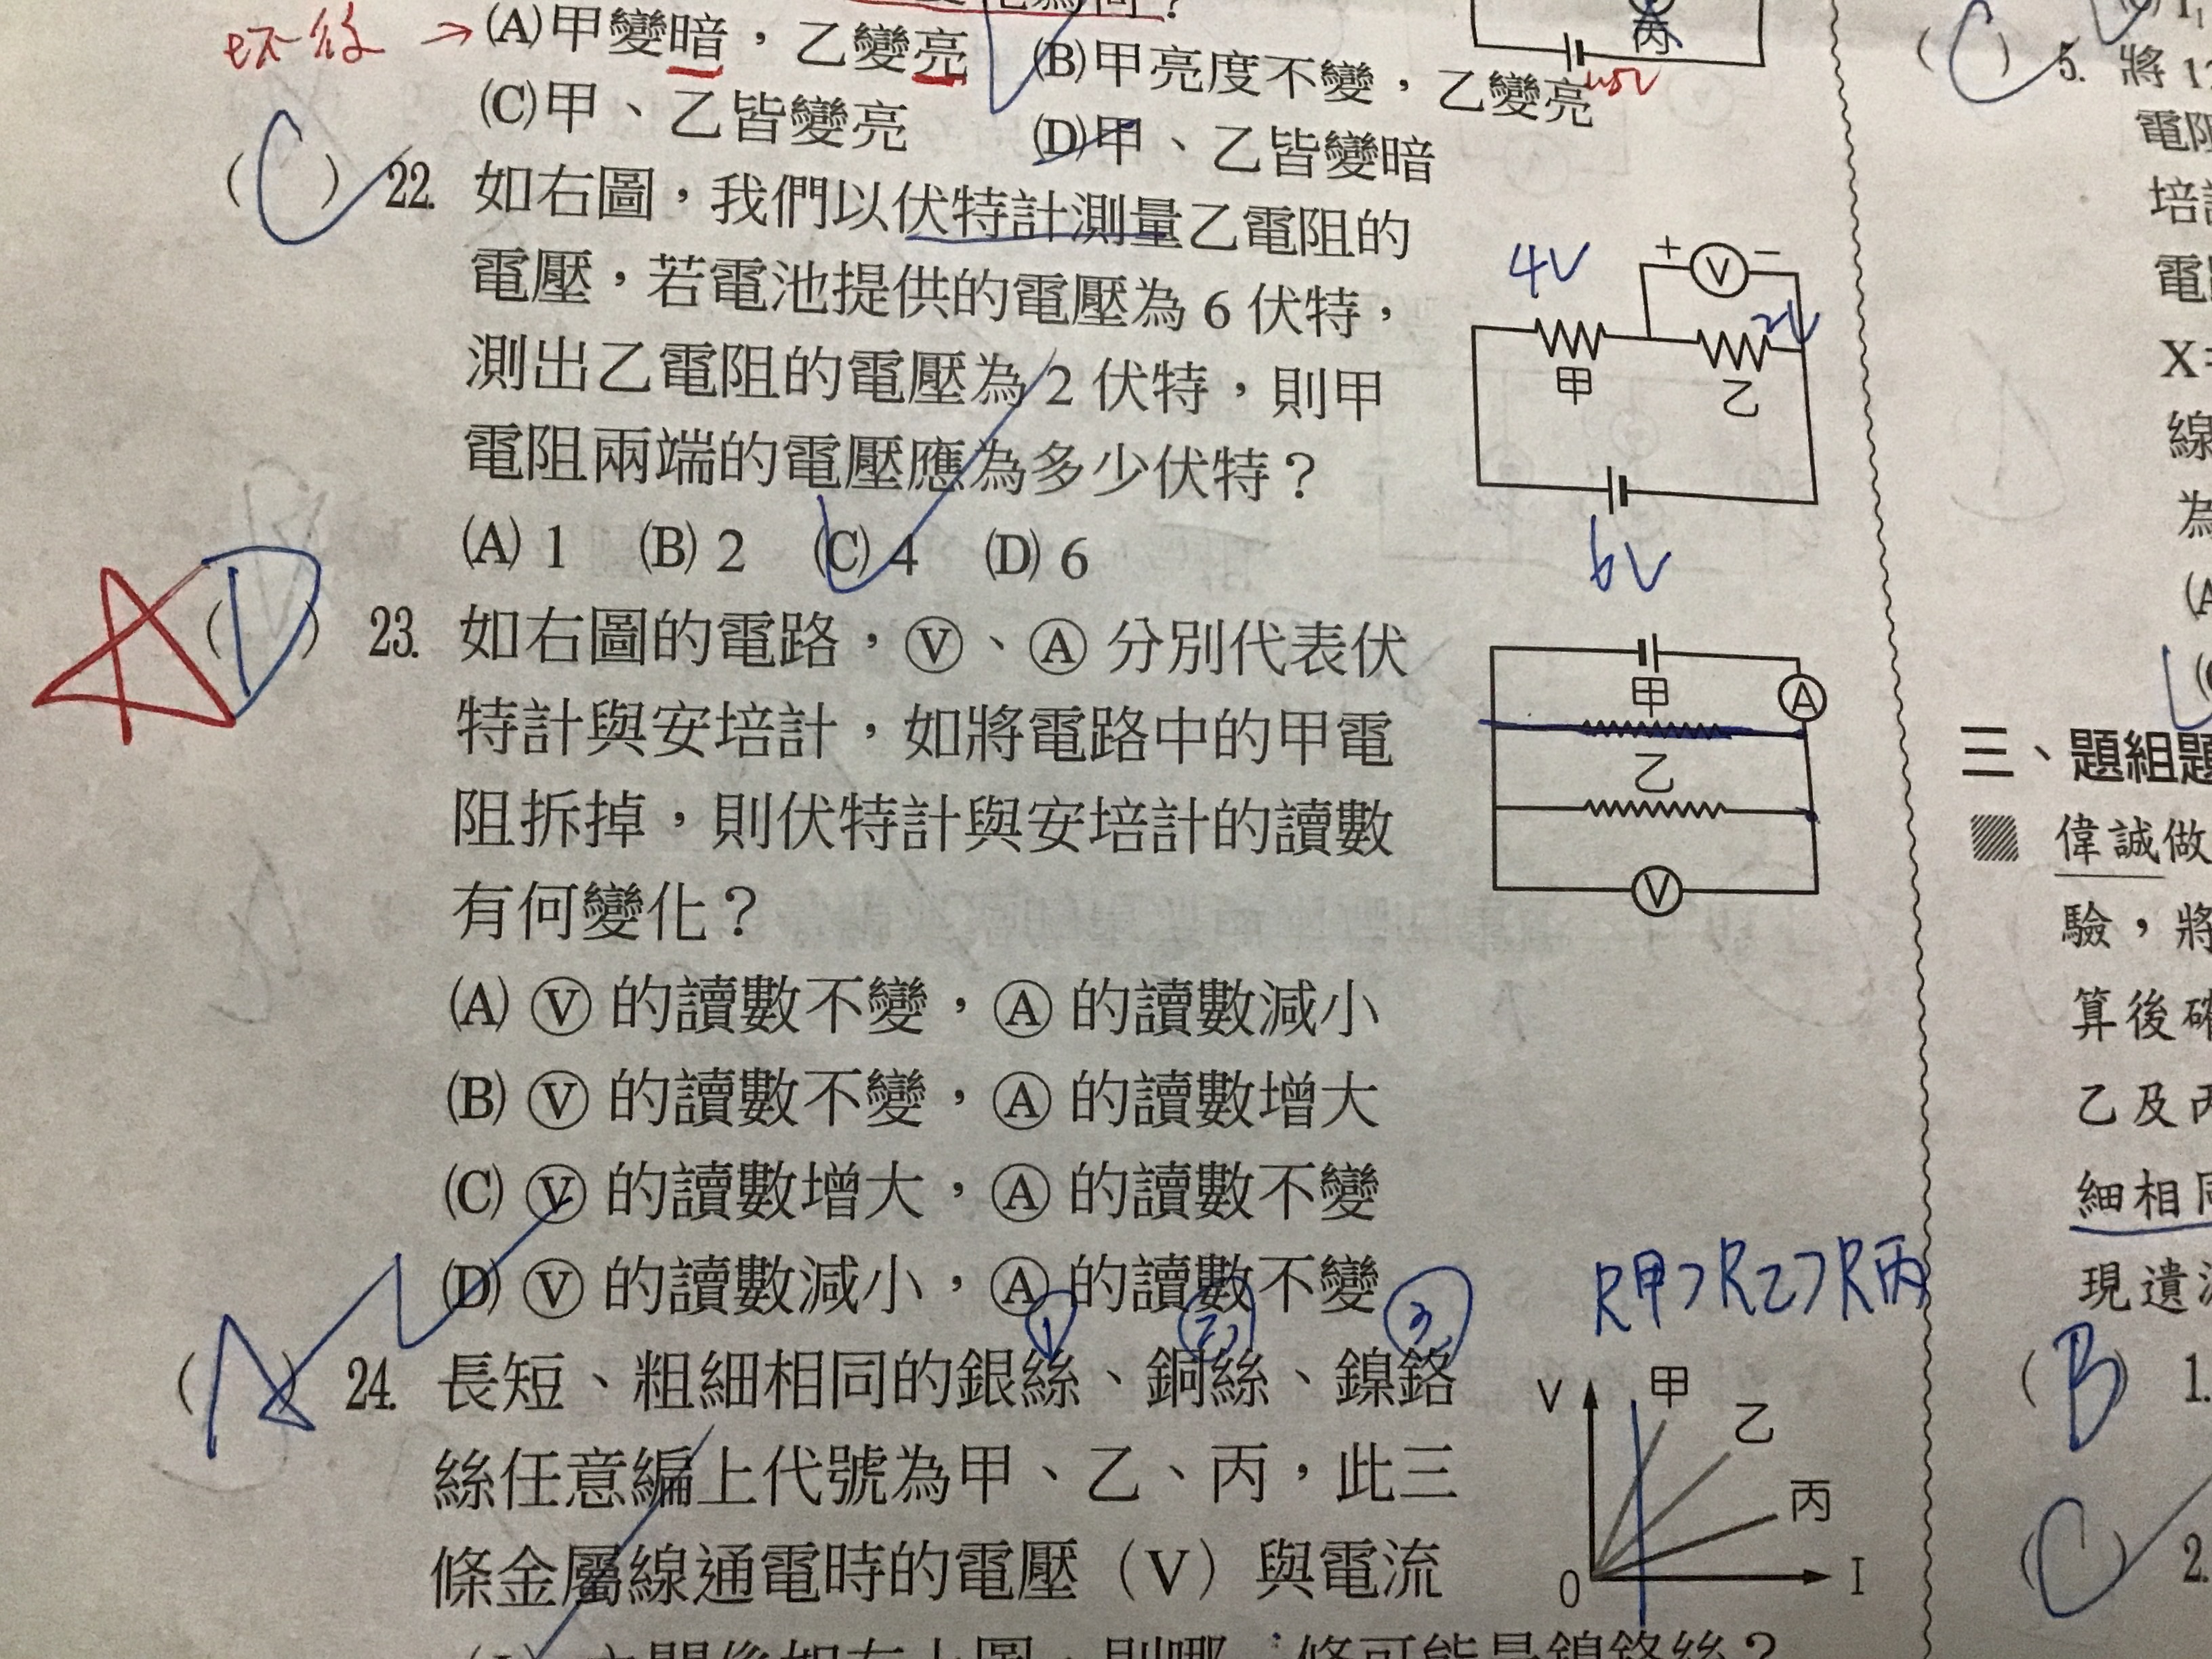 坏後 → (A)甲變暗，乙變亮 (B)甲亮度不變，乙變亮
(C)甲、乙皆變亮 (D)甲、乙皆變暗
丙
( C ) 22. 如右圖，我們以伏特計測量乙電阻的
電壓，若電池提供的電壓為 6 伏特，
測出乙電阻的電壓為 2 伏特，則甲
電阻兩端的電壓應為多少伏特？
(A) 1 (B) 2 (C) 4 (D) 6
4V + V −
2V
甲 乙
6V
A ( D ) 23. 如右圖的電路，Ⓥ、Ⓐ 分別代表伏
特計與安培計，如將電路中的甲電
阻拆掉，則伏特計與安培計的讀數
有何變化？
(A) Ⓥ 的讀數不變，Ⓐ 的讀數減小
(B) Ⓥ 的讀數不變，Ⓐ 的讀數增大
(C) Ⓥ 的讀數增大，Ⓐ 的讀數不變
(D) Ⓥ 的讀數減小，Ⓐ 的讀數不變
甲 A
乙
V
① ② ③
( A ) 24. 長短、粗細相同的銀絲、銅絲、鎳鉻
絲任意編上代號為甲、乙、丙，此三
條金屬線通電時的電壓（V）與電流
R甲>R乙>R丙
V 甲
乙
丙
0 I
( C ) 5. 將
電阻
培
電
X
線
為
(A
三、題組題
偉誠做
驗，將
算後
乙及丙
細相同
現遺
( B ) 1.
( C ) 2.